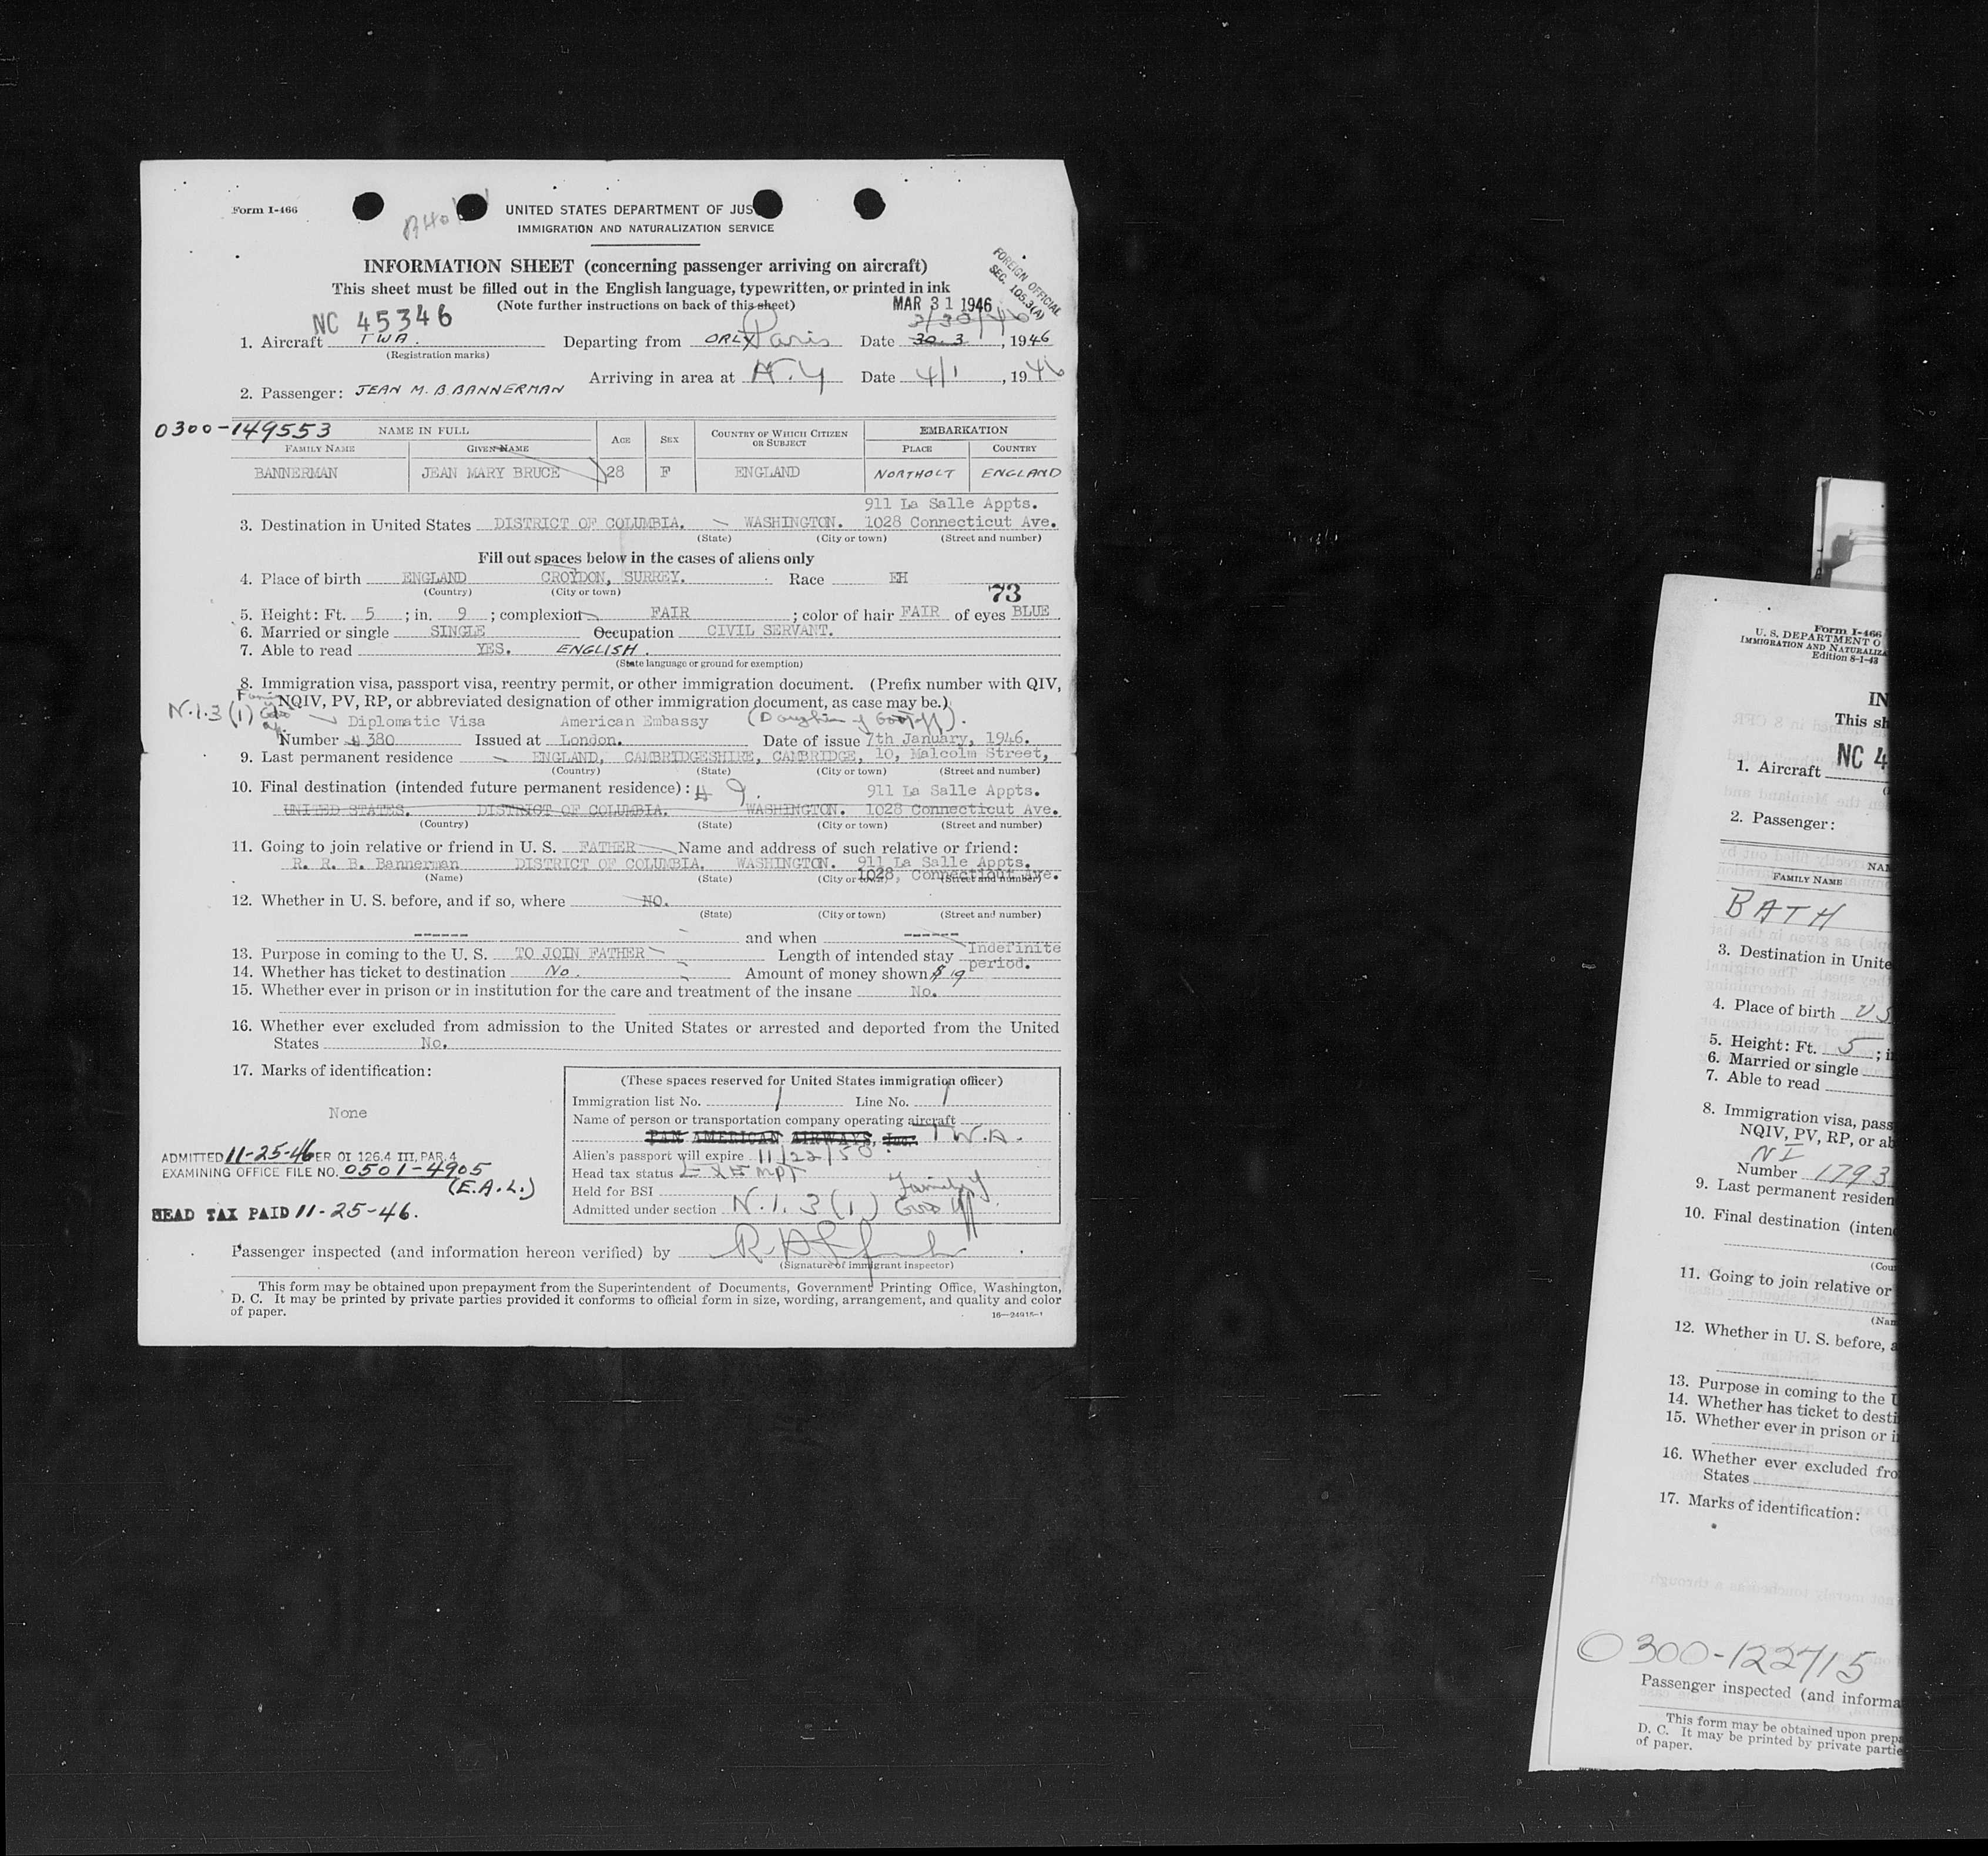 Form I-466
UNITED STATES DEPARTMENT OF JUS
IMMIGRATION AND NATURALIZATION SERVICE
INFORMATION SHEET (concerning passenger arriving on aircraft)
This sheet must be filled out in the English language, typewritten, or printed in ink
(Note further instructions on back of this sheet)
FOREIGN OFFICIAL
SEC. 105.3(A)
MAR 31 1946
NC 45346
3/30/46
1. Aircraft TWA. Departing from ORLY Paris Date 30.3, 1946
(Registration marks)
Arriving in area at N.Y Date 4/1, 1946
2. Passenger: JEAN M. B. BANNERMAN
0300-149553
NAME IN FULL AGE SEX COUNTRY OF WHICH CITIZEN OR SUBJECT EMBARKATION
FAMILY NAME GIVEN NAME PLACE COUNTRY
BANNERMAN JEAN MARY BRUCE 28 F ENGLAND NORTHOLT ENGLAND
911 La Salle Appts.
3. Destination in United States DISTRICT OF COLUMBIA. WASHINGTON. 1028 Connecticut Ave.
(State) (City or town) (Street and number)
Fill out spaces below in the cases of aliens only
4. Place of birth ENGLAND CROYDON, SURREY. Race EH
(Country) (City or town)
73
5. Height: Ft. 5; in. 9; complexion FAIR; color of hair FAIR of eyes BLUE
6. Married or single SINGLE Occupation CIVIL SERVANT.
7. Able to read YES. ENGLISH.
(State language or ground for exemption)
8. Immigration visa, passport visa, reentry permit, or other immigration document. (Prefix number with QIV,
NQIV, PV, RP, or abbreviated designation of other immigration document, as case may be.)
N.1.3 (1) Family
Diplomatic Visa American Embassy (Daughter of Govt off).
Number # 380 Issued at London. Date of issue 7th January, 1946.
9. Last permanent residence ENGLAND, CAMBRIDGESHIRE, CAMBRIDGE, 10, Malcolm Street,
(Country) (State) (City or town) (Street and number)
10. Final destination (intended future permanent residence): 911 La Salle Appts.
UNITED STATES. DISTRICT OF COLUMBIA. WASHINGTON. 1028 Connecticut Ave.
(Country) (State) (City or town) (Street and number)
11. Going to join relative or friend in U. S. FATHER Name and address of such relative or friend:
R. R. B. Bannerman DISTRICT OF COLUMBIA, WASHINGTON. 911 La Salle Appts.
1028, Connecticut Ave.
(Name) (State) (City or town) (Street and number)
12. Whether in U. S. before, and if so, where NO.
(State) (City or town) (Street and number)
------ and when ------
13. Purpose in coming to the U. S. TO JOIN FATHER Length of intended stay Indefinite period.
14. Whether has ticket to destination No. Amount of money shown $ 19
15. Whether ever in prison or in institution for the care and treatment of the insane No.
16. Whether ever excluded from admission to the United States or arrested and deported from the United
States No.
17. Marks of identification:
None
(These spaces reserved for United States immigration officer)
Immigration list No. 1 Line No. 1
Name of person or transportation company operating aircraft
PAN AMERICAN AIRWAYS, Inc. T.W.A.
Alien's passport will expire 11/22/50
Head tax status EXEMPT
Held for BSI
Admitted under section N.1. 3 (1) Family Gov Off
ADMITTED 11-25-46 PER OI 126.4 III, PAR. 4
EXAMINING OFFICE FILE NO. 0501-4905
(E.A.L.)
HEAD TAX PAID 11-25-46.
Passenger inspected (and information hereon verified) by
(Signature of immigrant inspector)
This form may be obtained upon prepayment from the Superintendent of Documents, Government Printing Office, Washington,
D. C. It may be printed by private parties provided it conforms to official form in size, wording, arrangement, and quality and color
of paper.
16—24915-1
Form I-466
U. S. DEPARTMENT O
IMMIGRATION AND NATURALIZA
Edition 8-1-43
IN
This sh
NC 4
1. Aircraft
2. Passenger:
NA
FAMILY NAME
BATH
3. Destination in Unite
4. Place of birth US
5. Height: Ft. 5; i
6. Married or single
7. Able to read
8. Immigration visa, pass
NQIV, PV, RP, or ab
NI
Number 1793
9. Last permanent residen
10. Final destination (inten
(Cou
11. Going to join relative or
(Nam
12. Whether in U. S. before, a
13. Purpose in coming to the U
14. Whether has ticket to desti
15. Whether ever in prison or i
16. Whether ever excluded fro
States
17. Marks of identification:
0300-122715
Passenger inspected (and informa
This form may be obtained upon prepa
D. C. It may be printed by private partie
of paper.